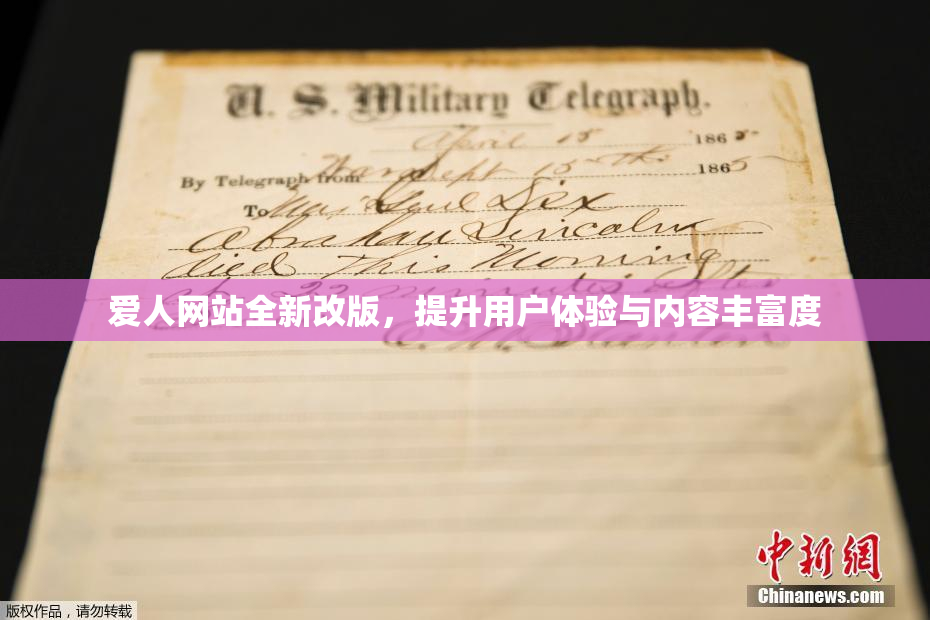 U. S. Military Telegraph.
April 15 1865
By Telegraph from War Dept 15th 1865
To Maj Genl Dix
Abraham Lincoln
died This Morning
at 22 minutes after
爱人网站全新改版，提升用户体验与内容丰富度
E. M. Stanton
中新网
Chinanews.com
版权作品，请勿转载